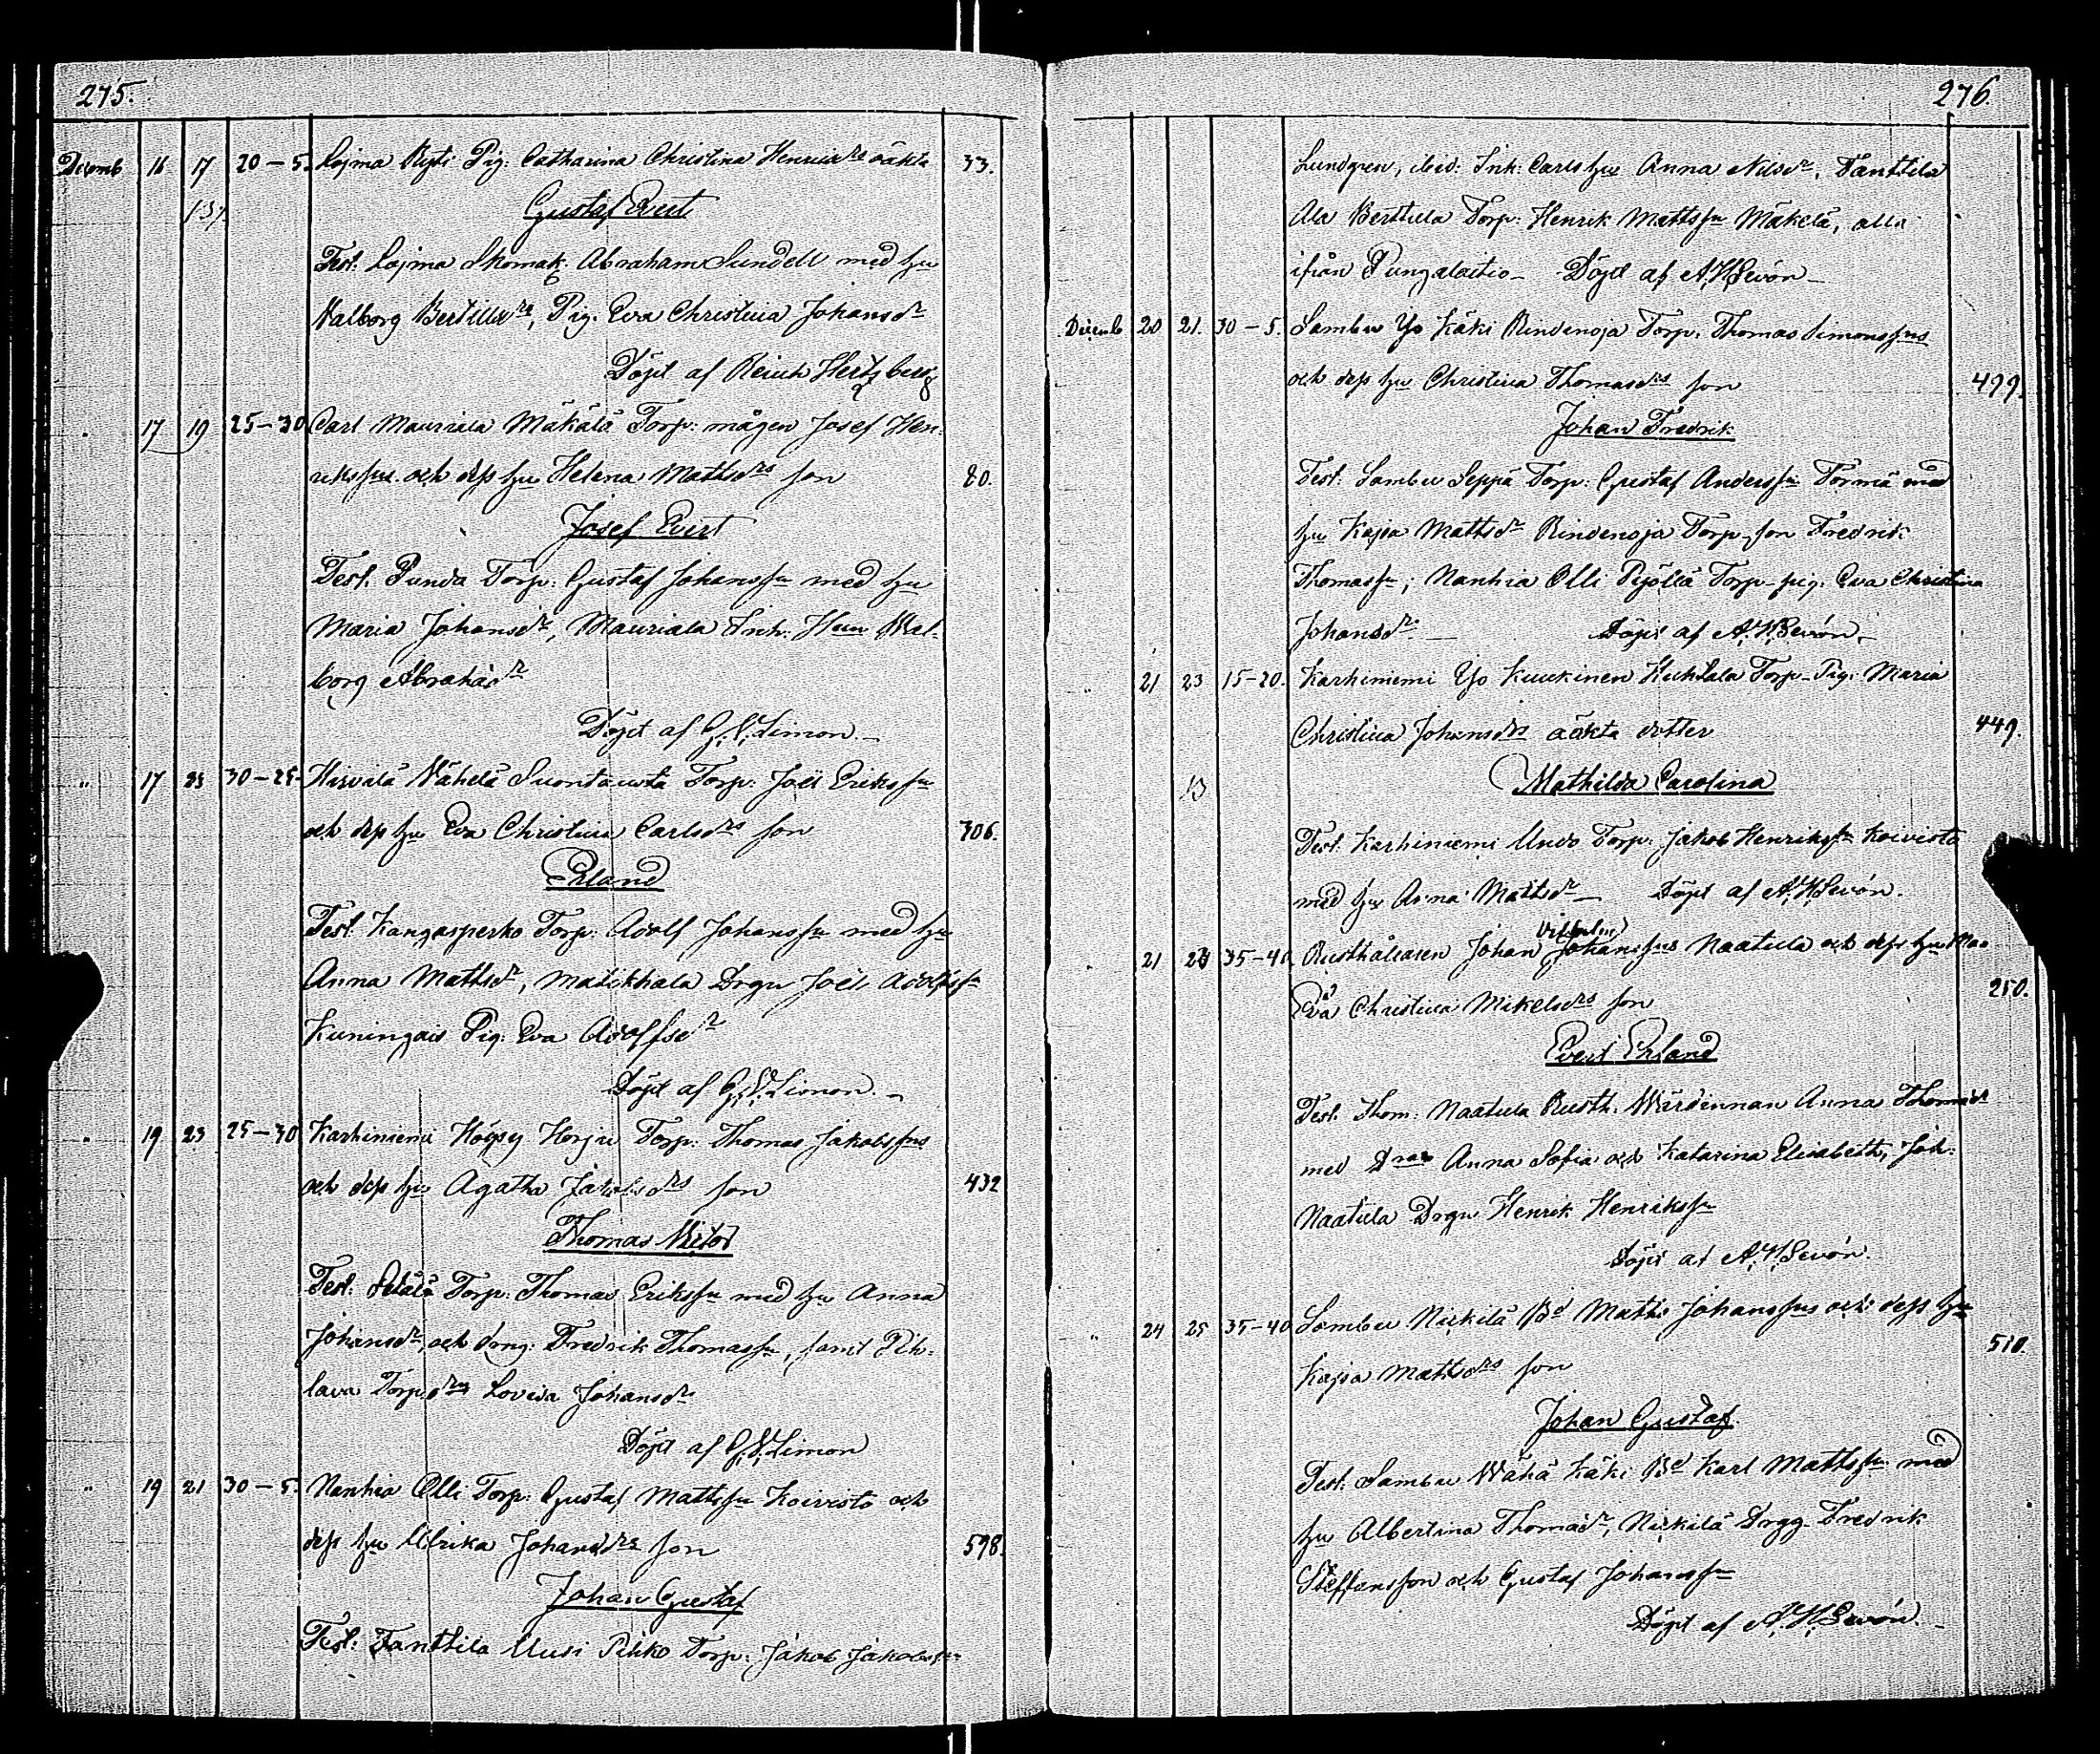 275.
Decemb 16 17 20–5. Lojma Ryti Pig: Catharina Christina Henriksdrs oäkta 33.
Gustaf Evert
Test. Lojma Skomak. Abraham Sundell med hu
Valborg Bertillsdr, Pig. Eva Christina Johansdr
Döpt af Reinh Hertzberg
" 17 19 25–30 Carl Mauriala Mäkälä Torp: mågen Josef Hen-
rikssns och dess hu Helena Mattsdrs son 80.
Josef Evert
Test. Punda Torp: Gustaf Johanssn med hu
Maria Johansdr, Mauriala Inh: Hun Wal-
borg Abrahådr
Döpt af G.V. Limon.
" 17 23 30–25. Hirvilä Vähelä Suontausta Torp: Joel Erikssn
och dess hu Eva Christina Carlsdrs son 306.
Erland
Test. Kangasperko Torp: Adolf Johanssn med hu
Anna Mattsdr, Matikkala Drgn Joel Adolfssn
Kuningais Pig: Eva Adolfsdr
Döpt af G.V. Limon.
" 19 23 25–30 Karhiniemi Höysy Horju Torp: Thomas Jakobssns
och dess hu Agatha Jakobsdrs son 432
Thomas Vitor
Test: Setälä Torp: Thomas Erikssn med hu Anna
Johansdr, och dreng: Fredrik Thomassn, samt Pih-
lava Torp.drn Lovisa Johansdr
Döpt af G.V. Limon
" 19 21 30–5. Nanhia Olli Torp: Gustaf Mattssn Koivisto och
dess hu Ulrika Johansdrs son 598.
Johan Gustaf
Test: Tanttila Uusi Pikko Torp: Jakob Jakobssn
276.
Lundgren, ibid: Ink: Carls hu Anna Nilsdr, Tanttila
Ala Berttula Torp: Henrik Mattssn Mäkelä, alla
ifrån Pungalaitio – Döpt af A.W. Sevón –
Decemb 20 21. 30–5. Sambu Yso Käki Rindenoja Torp. Thomas Simonssns
och dess hu Christina Thomasdrs son 499.
Johan Fredrik
Test: Sambu Seppä Torp: Gustaf Anderssn Törmä med
hu Kajsa Mattsdr Rindenoja Torp-son Fredrik
Thomassn, Nanhia Olli Pyöllä Torp-pig. Eva Christina
Johansdr – Döpt af A.W. Sevón –
" 21 23 15–20. Karhiniemi Yso Kuukinen Huhtala Torp-Pig. Maria
Christina Johansdrs oäkta dotter 449.
Mathilda Carolina
Test. Karhiniemi Undo Torp: Jakob Henrikssn Koivisto
med hu Anna Mattsdr – Döpt af A.W. Sevón.
Vilhelm
" 21 23 35–40. Rusthållaren Johan Johanssns Naatula och dess hu
Eva Christina Mikelsdrs son 250.
Evert Erland
Test. Thom: Naatula Rusth. Wärdinnan Anna Thomasdr
med Drar Anna Sofia och Katarina Elisabeth, Joh:
Naatula Drgn Henrik Henrikssn
Döpt af A.W. Sevón.
" 24 25 35–40 Sambu Nickilä Bd Matts Johanssns och dess hu
Kajsa Mattsdrs son 510.
Johan Gustaf.
Test: Sambu Wähä Käki Bd Karl Mattssn med
hu Albertina Thomasdr, Nickilä Drgg. Fredrik
Steffansson och Gustaf Johanssn
Döpt af A.W. Sevón.